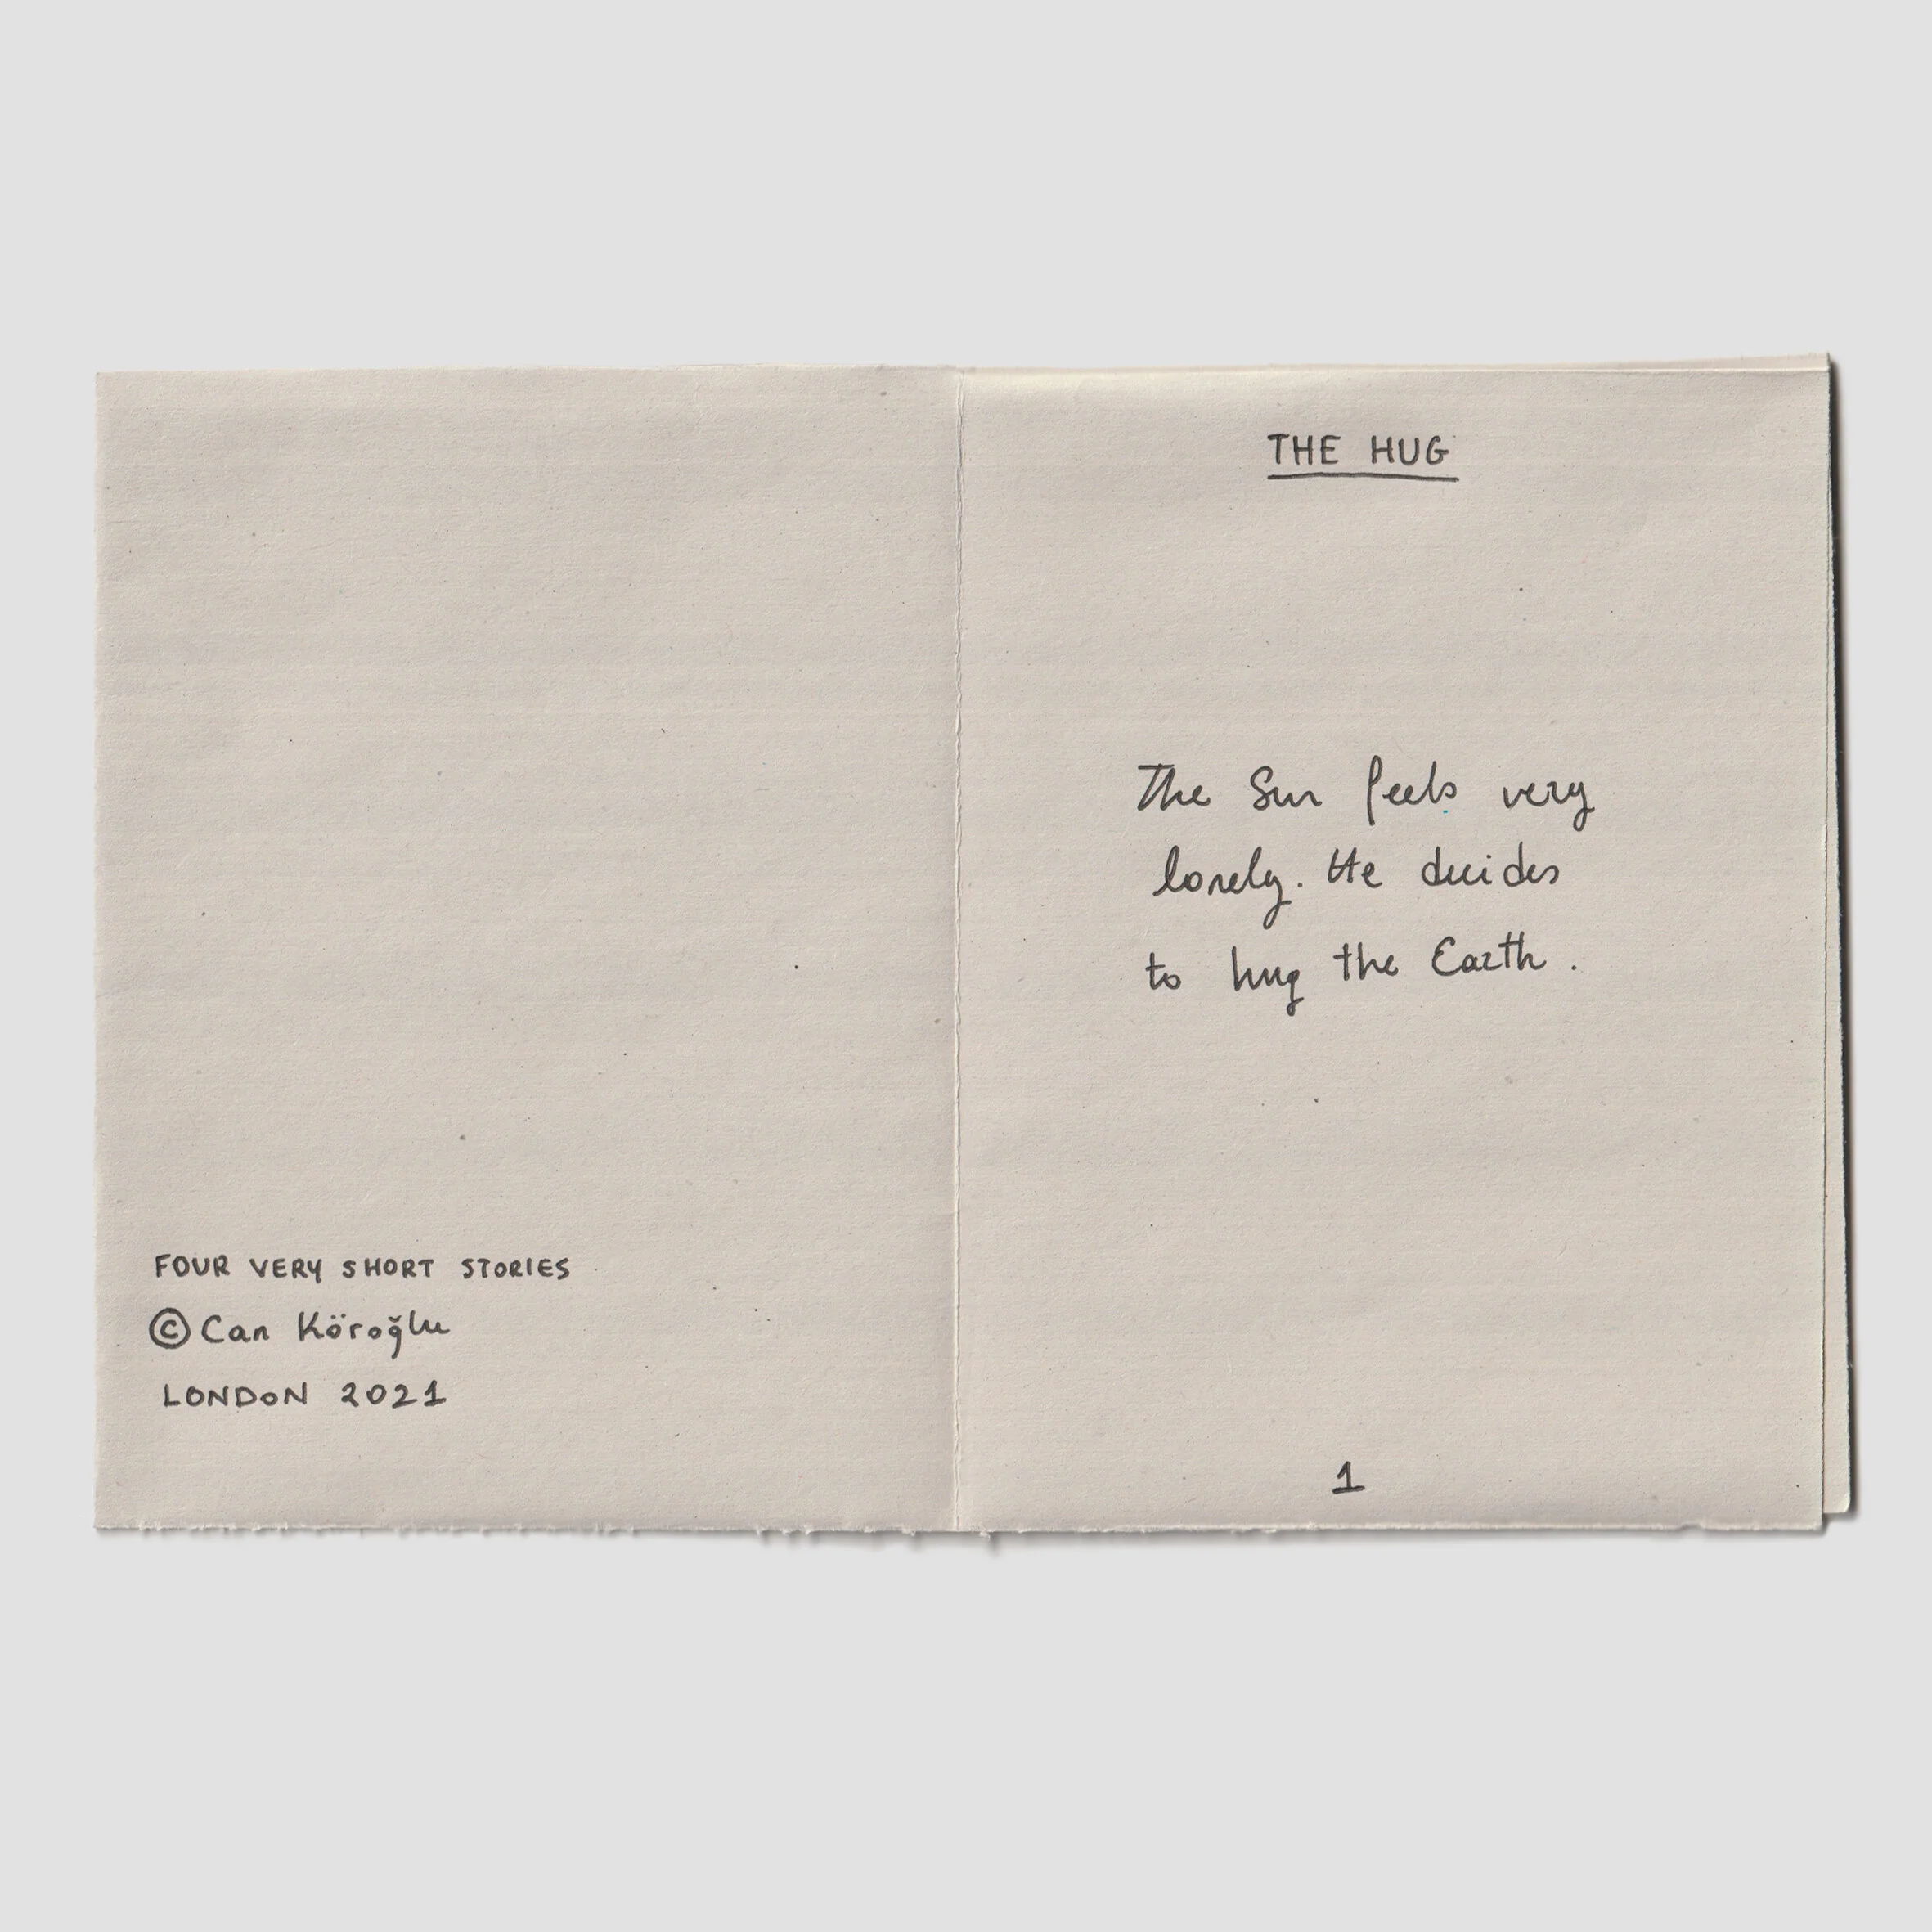 FOUR VERY SHORT STORIES
© Can Köroğlu
LONDON 2021
THE HUG
The Sun feels very
lonely. He decides
to hug the Earth.
1